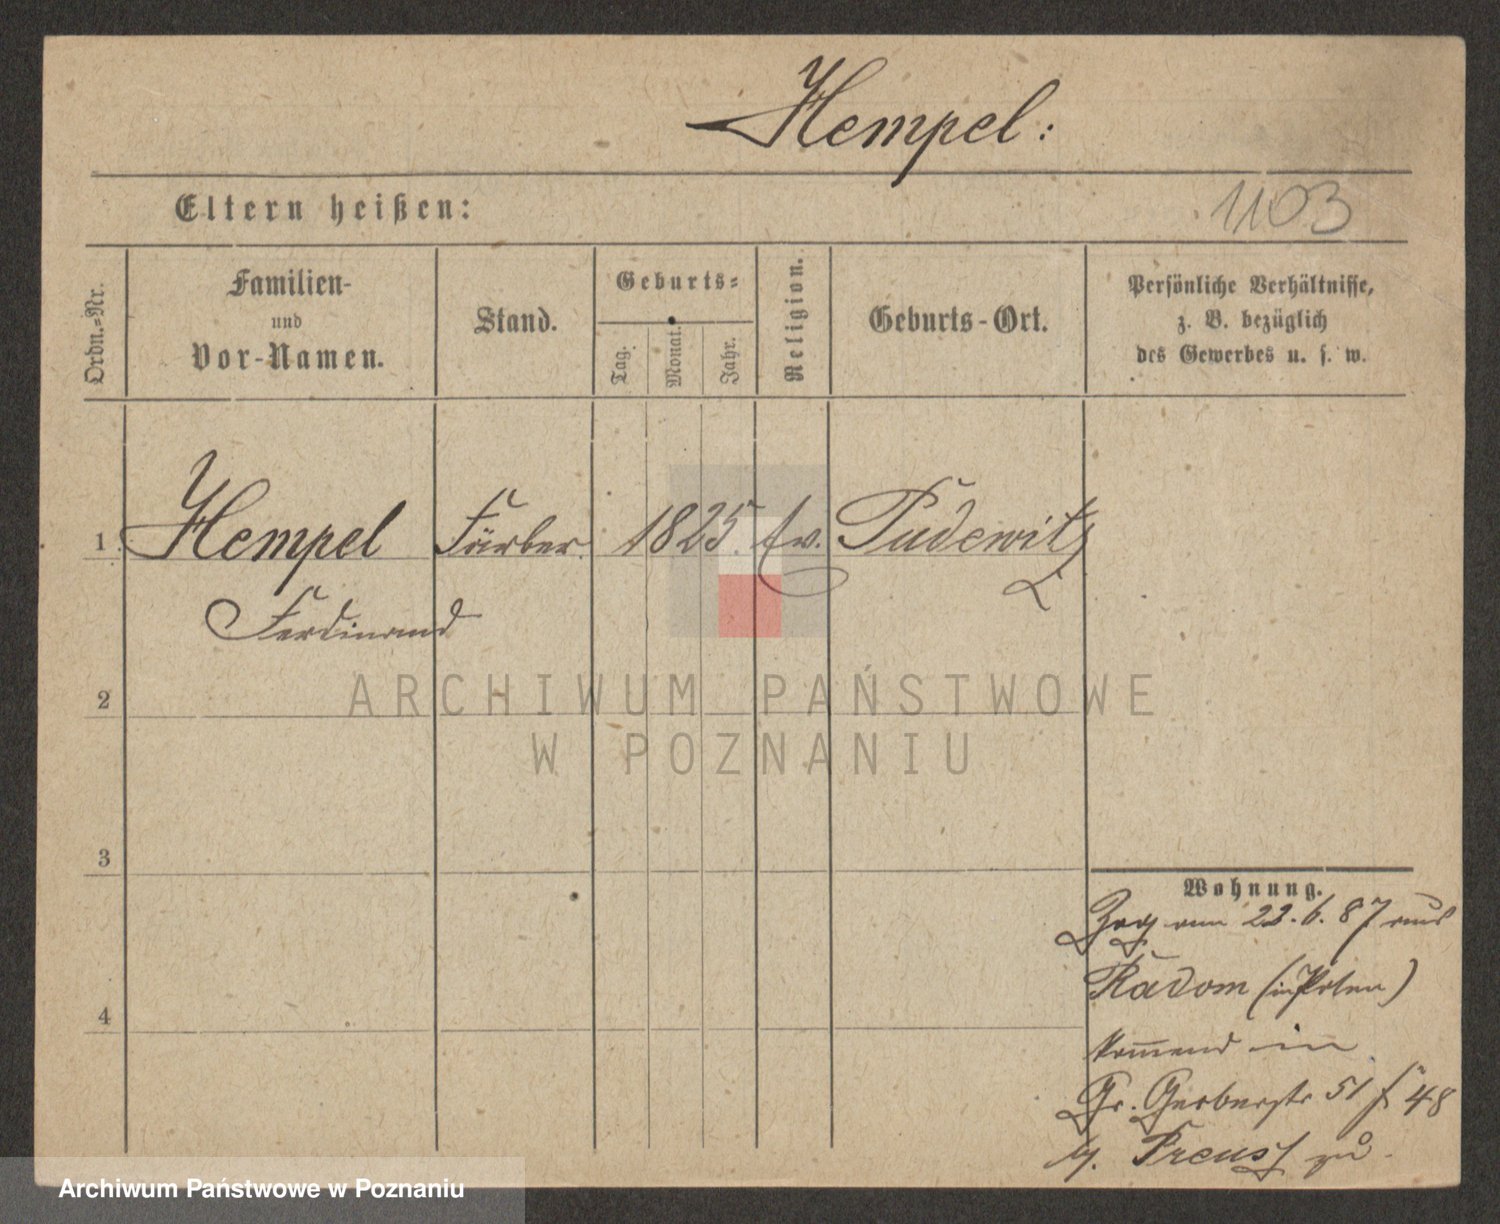 Hempel:
Eltern heißen:
1103
Ordn.=Nr.
Familien-
und
Vor-Namen.
Stand.
Geburts=
Tag.
Monat.
Jahr.
Religion.
Geburts-Ort.
Persönliche Verhältnisse,
z. B. bezüglich
des Gewerbes u. s. w.
1 Hempel Färber 1825. ev. Pudewitz
Ferdinand
2
3
4
Wohnung.
Zog am 22.6.87 aus
Radom (in Polen)
kom̅end in
Gr. Gerberstr 51 48
Preuss zu.
ARCHIWUM PAŃSTWOWE
W POZNANIU
Archiwum Państwowe w Poznaniu